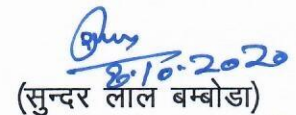 8.10.2020
(सुन्दर लाल बम्बोडा)